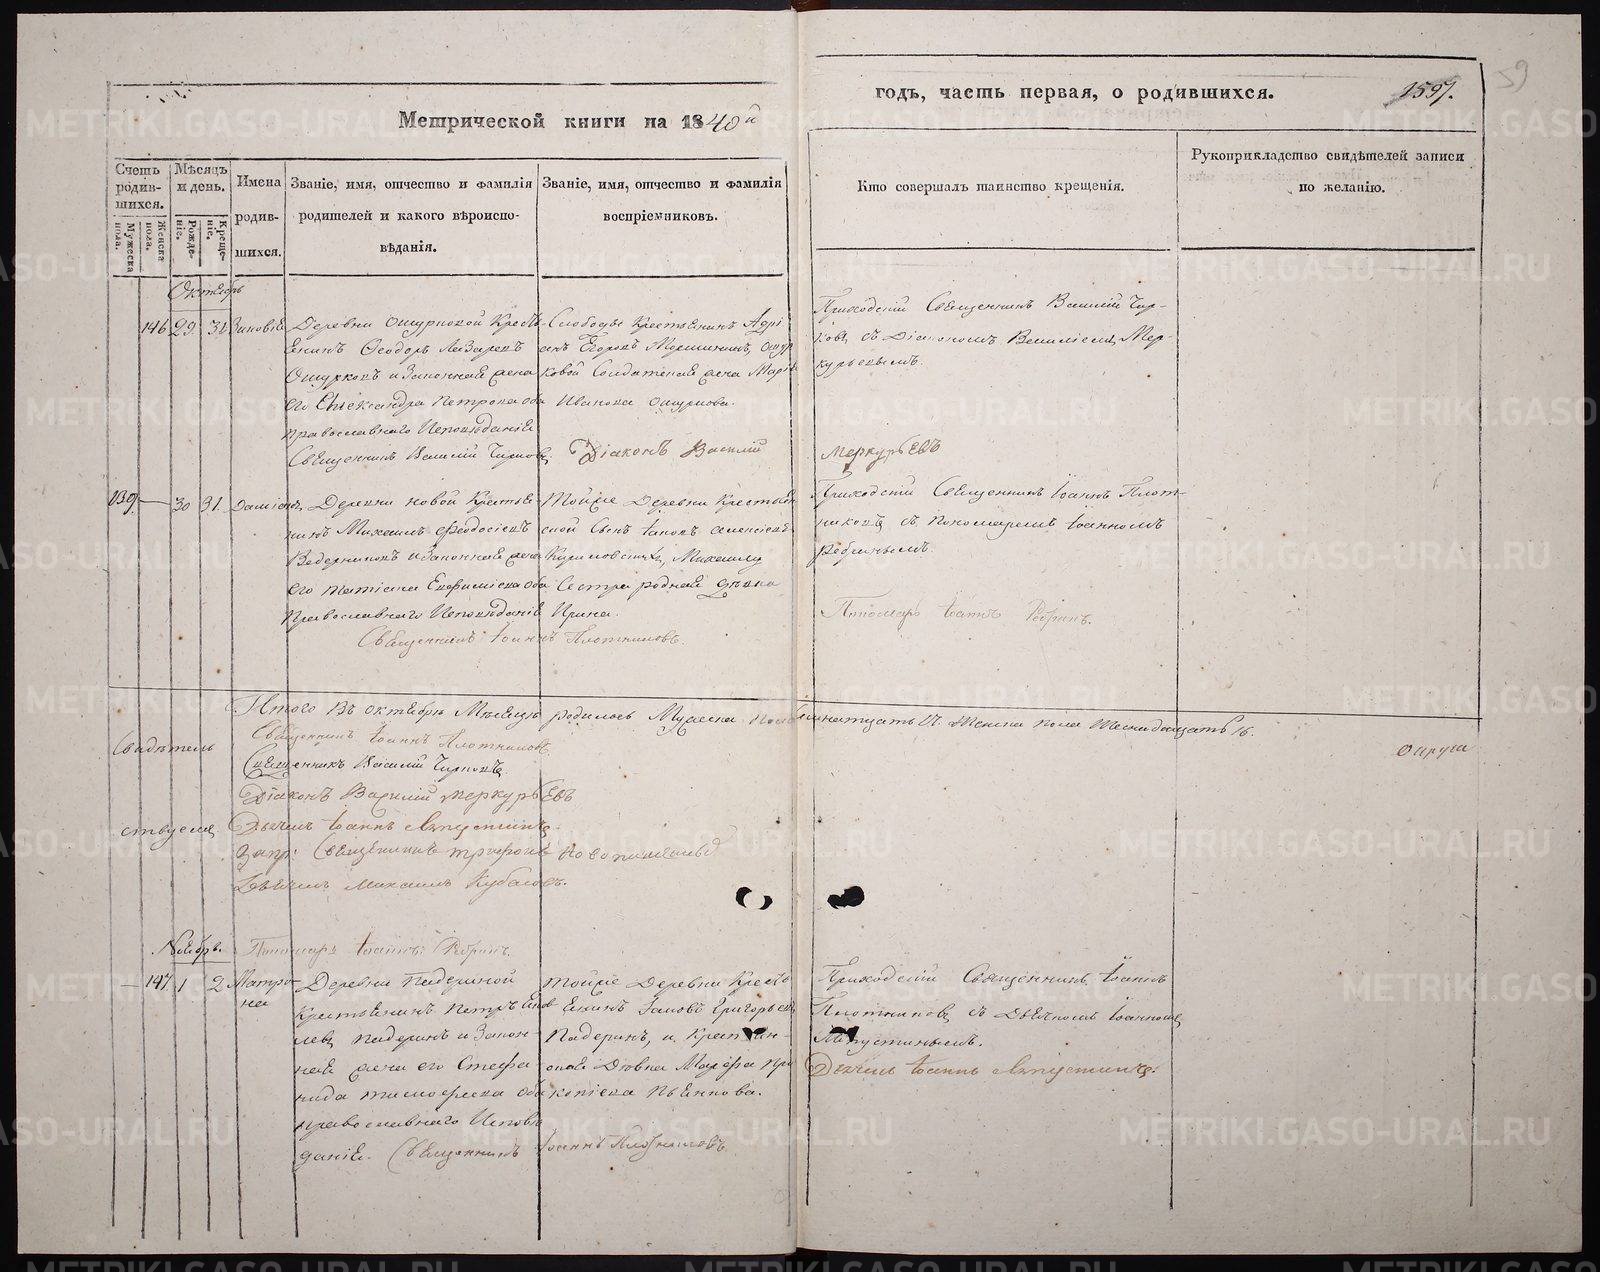 Метрической книги на 1840й
годъ, часть первая, о родившихся.
1597.
59
Счетъ родив-шихся.
Мужеска пола.
Женска пола.
Мѣсяцъ и день.
Рожде-ніе.
Креще-ніе.
Имена родив-шихся.
Званіе, имя, отчество и фамилія
родителей и какого вѣроиспо-
вѣданія.
Званіе, имя, отчество и фамилія
воспріемниковъ.
Кто совершалъ таинство крещенія.
Рукоприкладство свидѣтелей записи
по желанію.
Октябрь
146 29 31 Зиновія
Деревни Ошурковой Кресть-
янинъ Ѳеодоръ Лазаревъ
Ошурковъ и Законная жена
его Александра Петрова оба
православнаго Исповѣданія
Священникъ Василій Чирковъ
Слободы Крестьянинъ Адрі
анъ Егоровъ Ошур
ковой Солдатская жена Марія
Иванова Ошуркова.
Діаконъ Василій
Приходскій Священникъ Василій Чир-
ковъ съ Діакономъ Василіемъ Мер-
курьевымъ.
Меркурьевъ
139 — 30 31 Даміанъ
Деревни Новой Крестья-
нинъ Михаилъ Ѳеодосіевъ
Ведерниковъ и Законная жена
его Татіана Евфиміева оба
Православнаго Исповѣданія
Священникъ Іоаннъ Плотниковъ.
Тойже Деревни Крестьян
ской Сынъ Іаковъ Алексіевъ
Михаилу
Сестра родная дѣвка
Ирина.
Приходскій Священникъ Іоаннъ Плот-
никовъ съ Пономаремъ Іоанномъ
Ребринымъ.
Пономарь Іоаннъ Ребринъ.
Итого въ Октябрѣ Мѣсяцѣ родилось Мужеска Пола Женска пола Шестнадцать 16.
Свидѣтель
ствуемъ
Священникъ Іоаннъ Плотниковъ
Священникъ Василій Чирковъ
Діаконъ Василій Меркурьевъ
Дьячекъ Іоаннъ Лапустинъ
Дьячекъ Михаилъ Кубасовъ.
Пономарь Іоаннъ Ребринъ.
Ноябрь.
— 147 1 2 Матро-
на
Деревни Падериной
Крестьянинъ Петръ Яков
левъ Падеринъ и Закон-
ная жена его Стефа
нида Тимофеева оба
православнаго Исповѣ
данія. Священникъ Іоаннъ Плотниковъ
тойже Деревни Кресть
янинъ Григорьевъ
Падеринъ, и Крестьян-
ская Дѣвка Марѳа Про
копіева Пьянкова.
Приходскій Священникъ Іоаннъ
Плотниковъ съ Дьячкомъ Іоанномъ
Лапустинымъ.
Дьячекъ Іоаннъ Лапустинъ.
METRIKI.GASO-URAL.RU